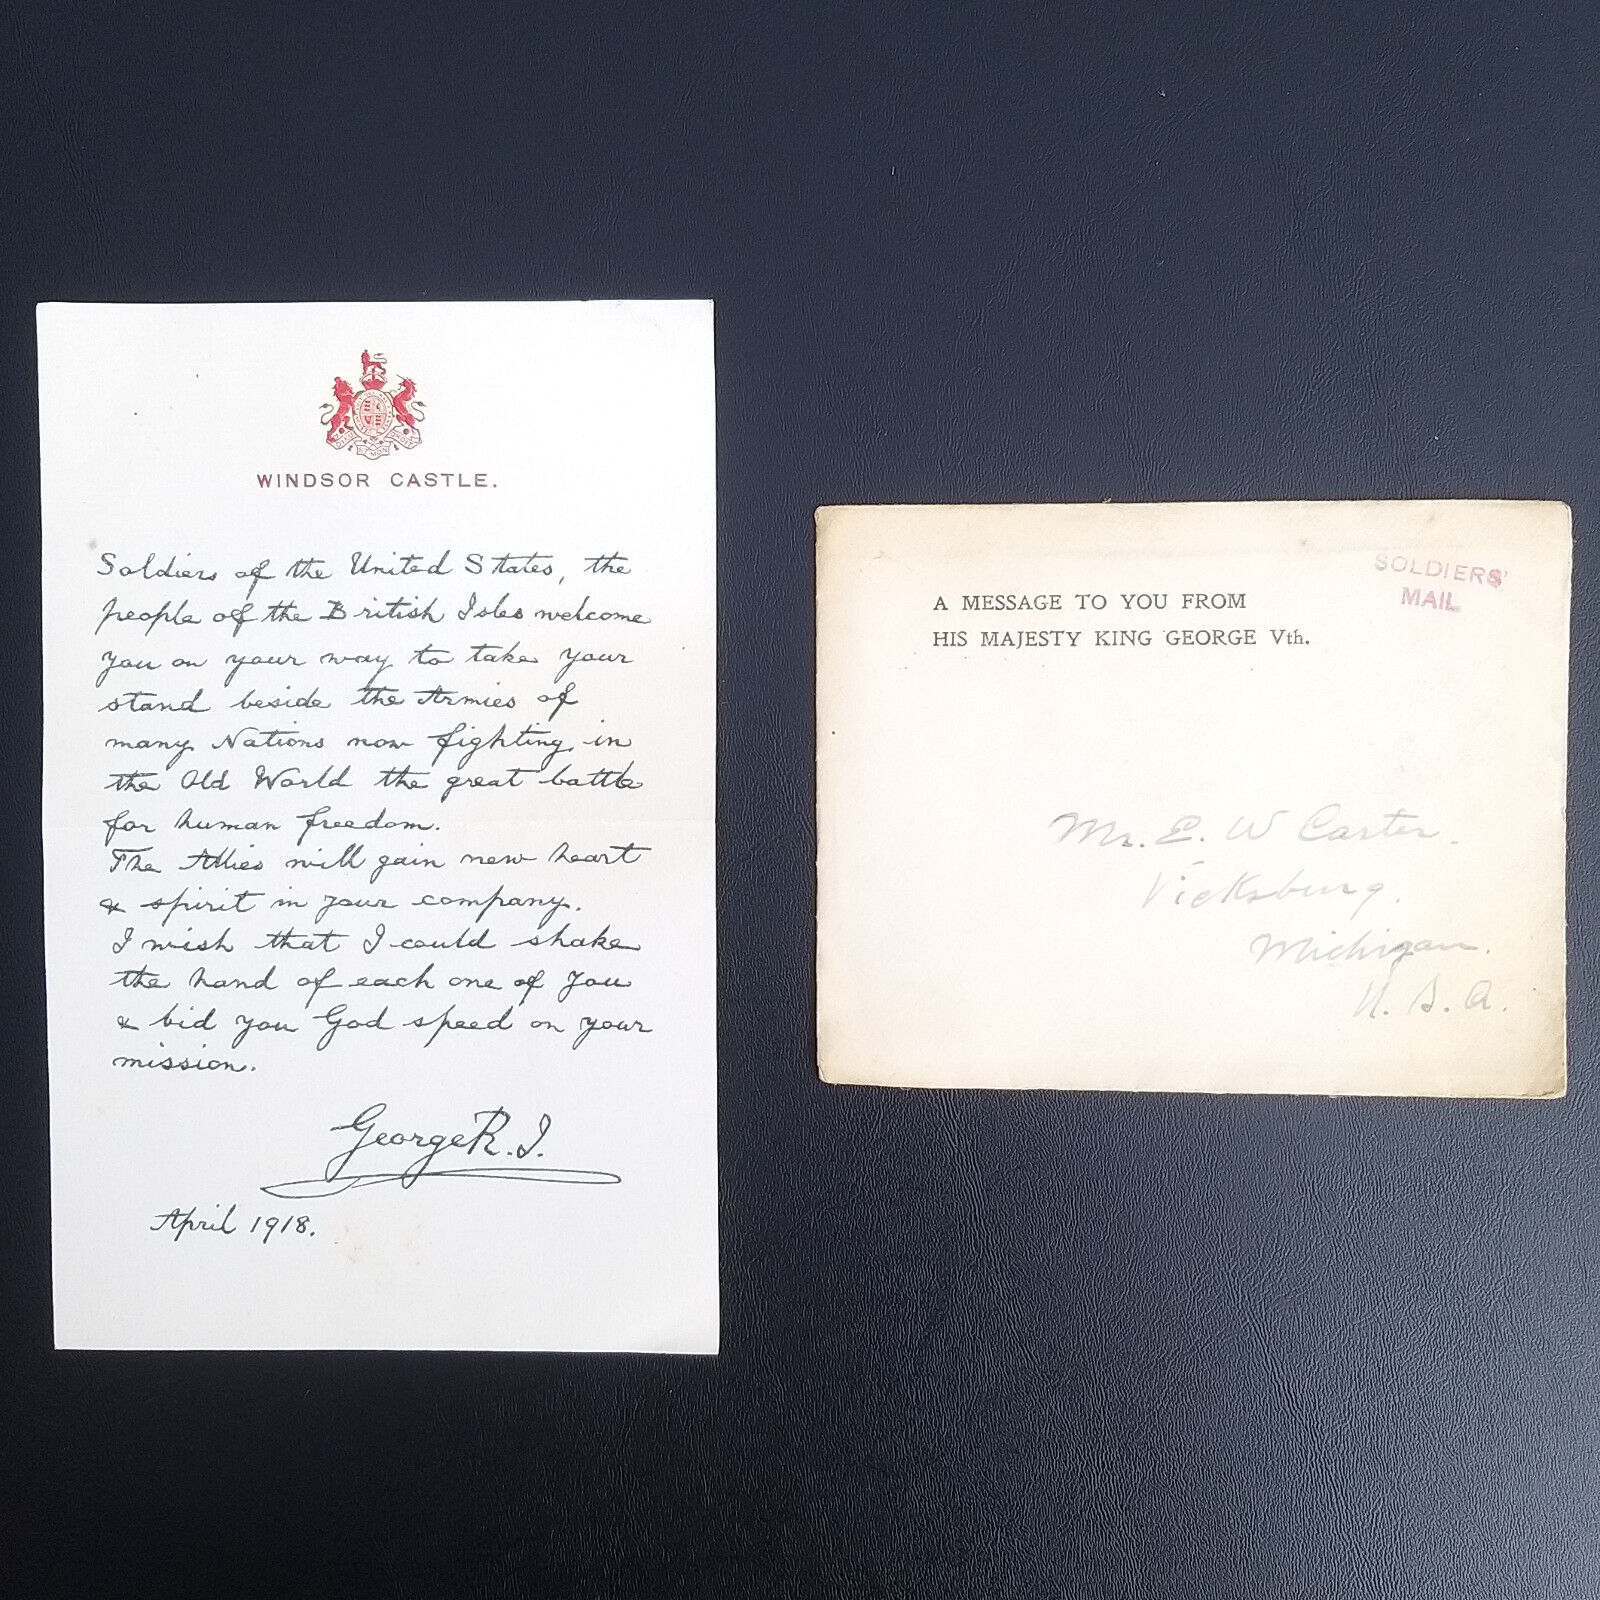 WINDSOR CASTLE.
Soldiers of the United States, the
people of the British Isles welcome
you on your way to take your
stand beside the Armies of
many Nations now fighting in
the Old World the great battle
for human freedom.
The Allies will gain new heart
& spirit in your company.
I wish that I could shake
the hand of each one of you
& bid you God speed on your
mission.
George R.I.
April 1918.
A MESSAGE TO YOU FROM
HIS MAJESTY KING GEORGE Vth.
SOLDIERS'
MAIL
Mr. E. W Carter.
Vicksburg.
Michigan.
U. S. A.